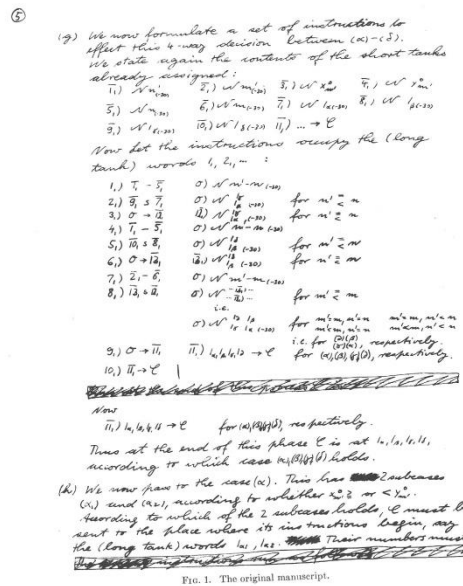 ⑤
(g) We now formulate a set of instructions to
effect this 4-way decision between (α)-(δ).
We state again the contents of the short tanks
already assigned:
1̄,) N n'(-30) 2̄,) N m'(-30) 3̄,) N 4̄,) N
5̄,) N n(-30) 6̄,) N m(-30) 7̄,) N 1α(-30) 8̄,) N 1β(-30)
9̄,) N 1γ(-30) 10̄,) N 1δ(-30) 11̄,) ... → C
Now let the instructions occupy the (long
tank) words 1, 2, ... :
1,) 1̄, - 5̄, O) N n'-n (-30)
2,) 9̄, s 7̄, O) N 1γ 1α (-30) for n' ≥ < n
3,) O → 12̄, 12̄,) N 1γ 1α (-30) for n' ≥ < n
4,) 1̄, - 5̄, O) N n'-n (-30)
5,) 10̄, s 8̄, O) N 1δ 1β (-30) for n' ≥ < n
6,) O → 13̄, 13̄,) N 1δ 1β (-30) for n' ≥ < n
7,) 2̄, - 6̄, O) N m'-m (-30)
8,) 13̄, s 12̄, O) N for m' ≥ < m
i.e.
O) N 1δ 1β 1γ 1α (-30) for m'≥m, n'≥n m'≥m, n'<n m'<m, n'≥n m'<m, n'<n
i.e. for (δ)(β)(γ)(α), respectively.
9,) O → 11̄, 11̄,) 1α,1β,1γ,1δ → C for (α),(β),(γ),(δ), respectively.
10,) 11̄, → C
Now
11̄,) 1α,1β,1γ,1δ → C for (α),(β),(γ),(δ), respectively.
Thus at the end of this phase C is at 1α,1β,1γ,1δ,
according to which case (α),(β),(γ),(δ) holds.
(h) We now pass to the case (α). This has 2 subcases
(α1) and (α2), according to whether ≥ or <
According to which of the 2 subcases holds, C must be
sent to the place where its instructions begin, say
the (long tank) words 1α1, 1α2. Their numbers must
Fig. 1. The original manuscript.